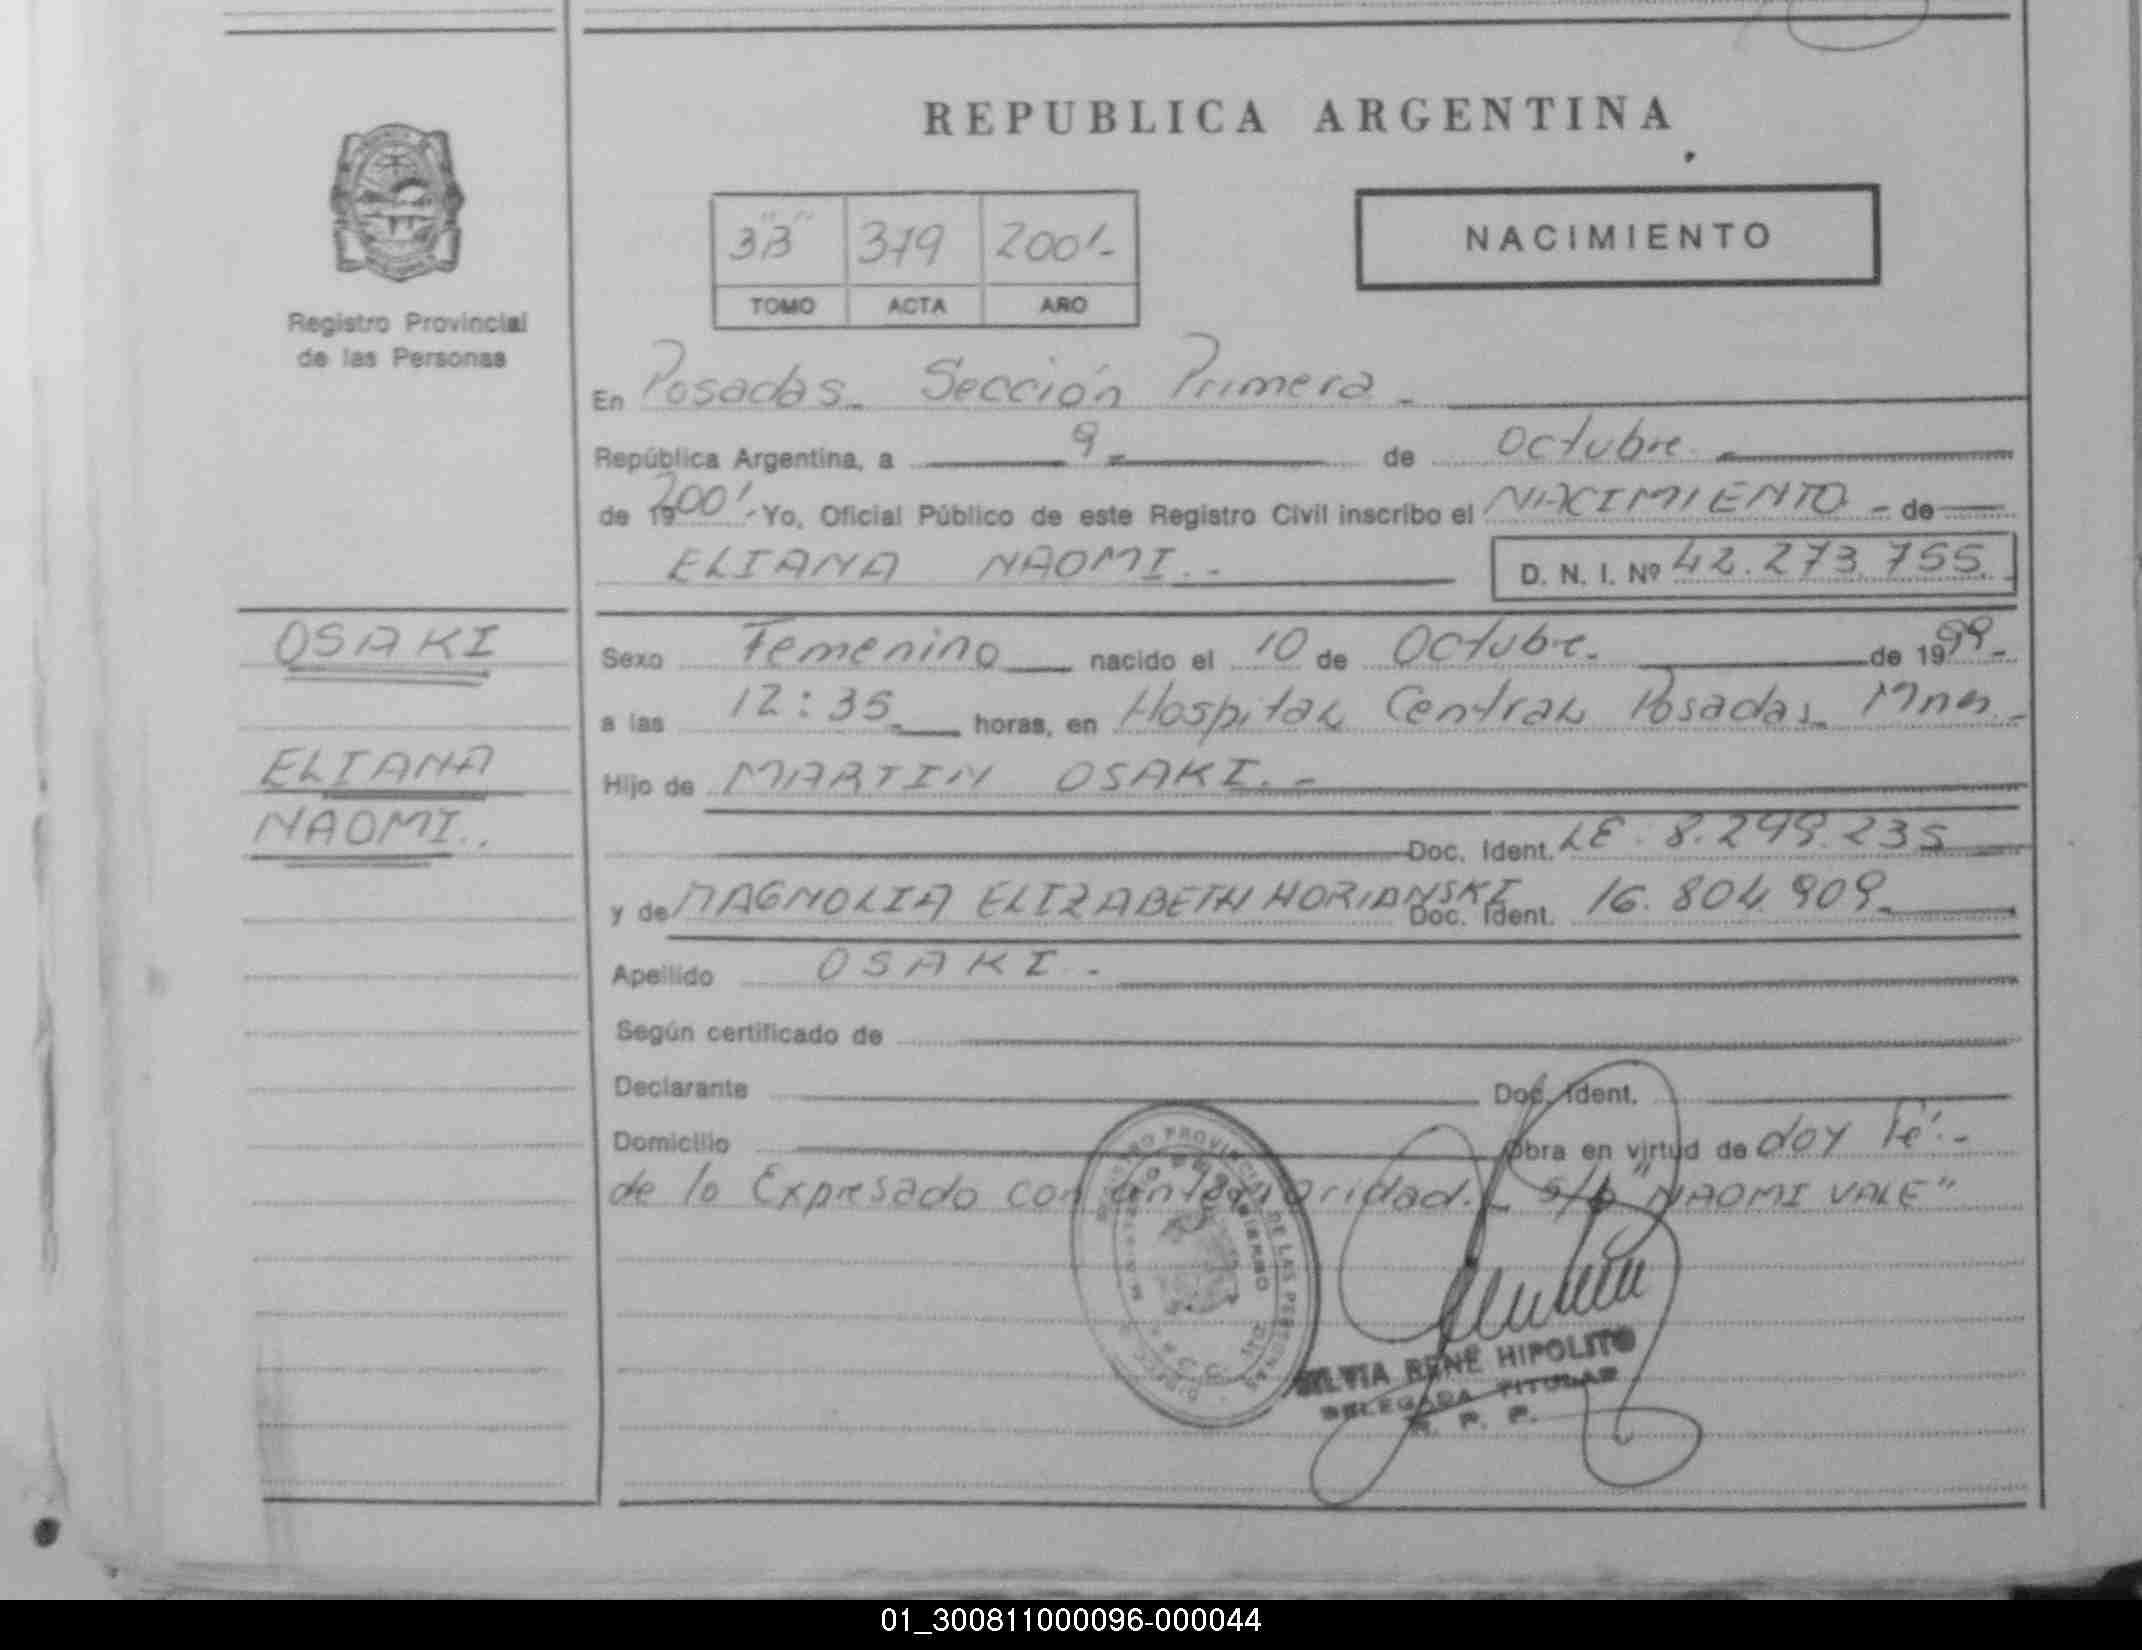 REPUBLICA ARGENTINA
NACIMIENTO
3"B" 379 2001.-
TOMO ACTA AÑO
Registro Provincial
de las Personas
En Posadas.- Sección Primera.-
República Argentina, a 9.- de Octubre.-
de 192001.- Yo, Oficial Público de este Registro Civil inscribo el NACIMIENTO.- de
ELIANA NAOMI.- D. N. I. Nº 42.273.755.-
OSAKI
ELIANA
NAOMI..
Sexo Femenino nacido el 10 de Octubre.- de 1999.-
a las 12:35.- horas, en Hospital Central Posadas.- Mnes.-
Hijo de MARTIN OSAKI.-
Doc. Ident. LE. 8.299.235
y de MAGNOLIA ELIZABETH HORIANSKI Doc. Ident. 16.804.909.-
Apellido OSAKI.-
Según certificado de
Declarante Doc. Ident.
Domicilio Obra en virtud de doy Fé.-
de lo Expresado con anterioridad.- s/b "NAOMI VALE"
REGISTRO PROVINCIAL DE LAS PERSONAS
MINISTERIO DE GOBIERNO
SILVIA RENE HIPOLITO
DELEGADA TITULAR
R. P. P.
01_300811000096-000044